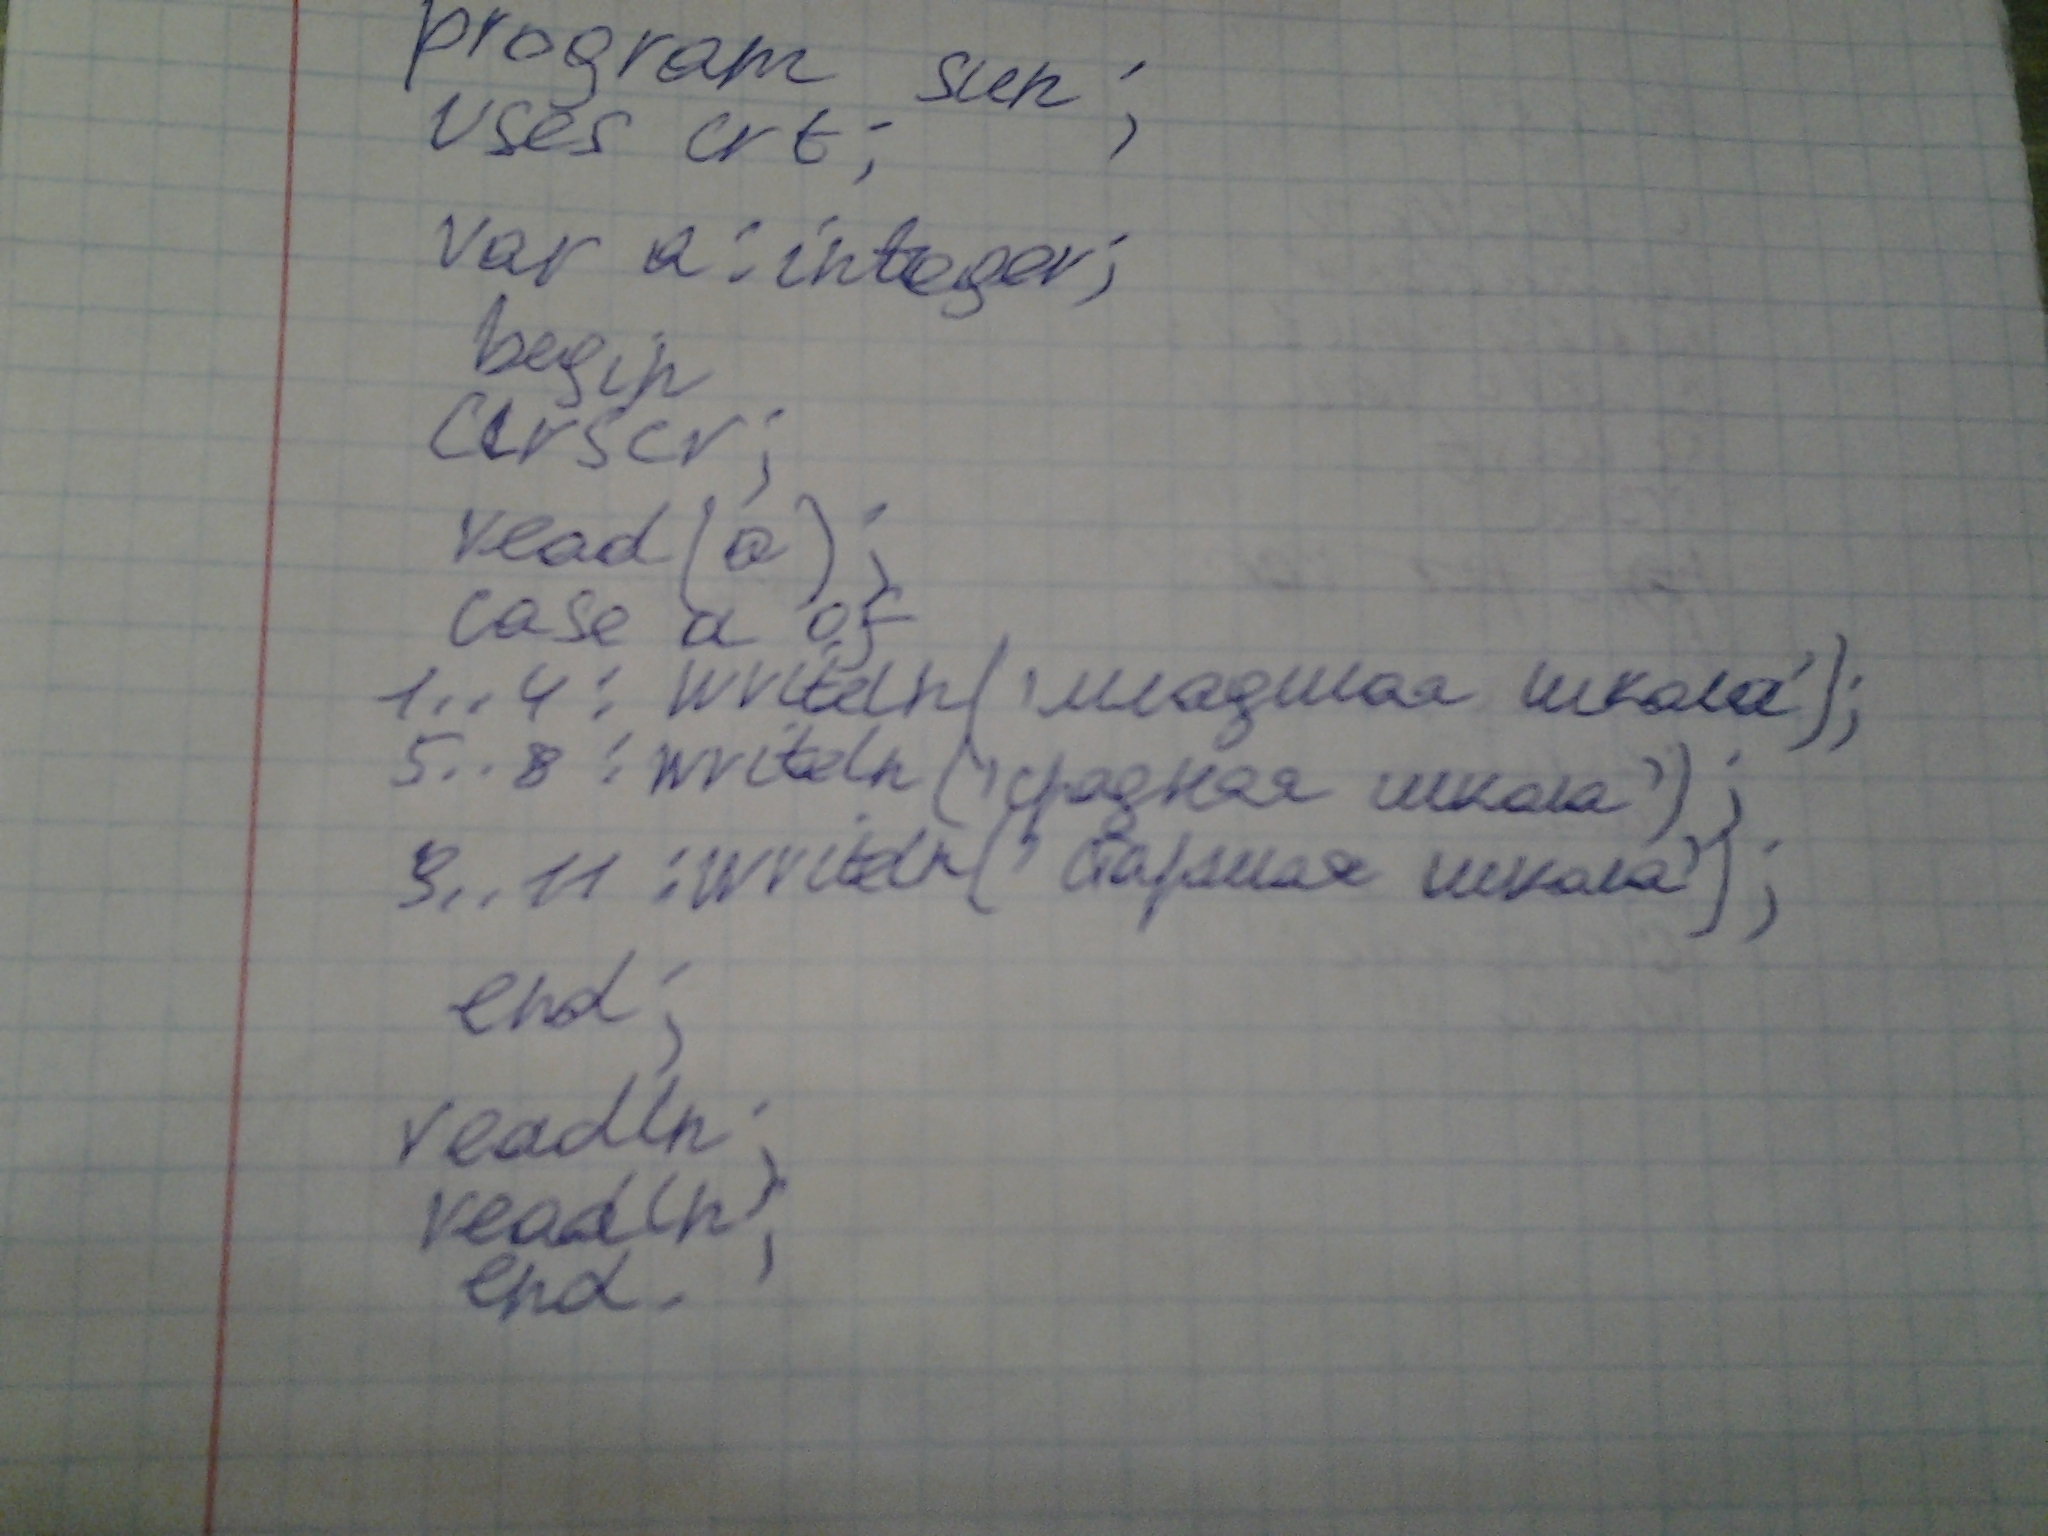 program sun;
uses crt;
var a:integer;
begin
Clrscr;
read(a);
case a of
1..4: writeln('младшая школа');
5..8: writeln('средняя школа');
9..11 :writeln('старшая школа');
end;
readln;
readln;
end.